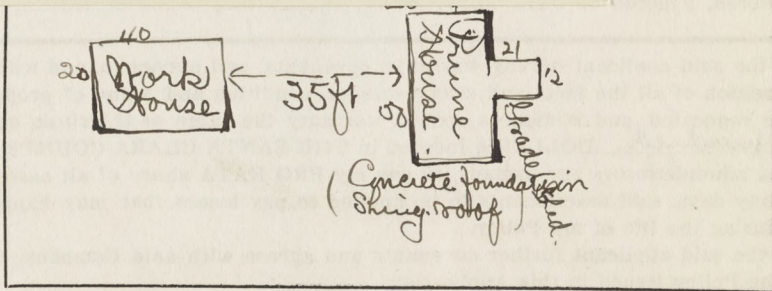 40
20 Work
House
35ft
50
Prune
House
21
12
Shed.
(Concrete foundation
Shing. roof)